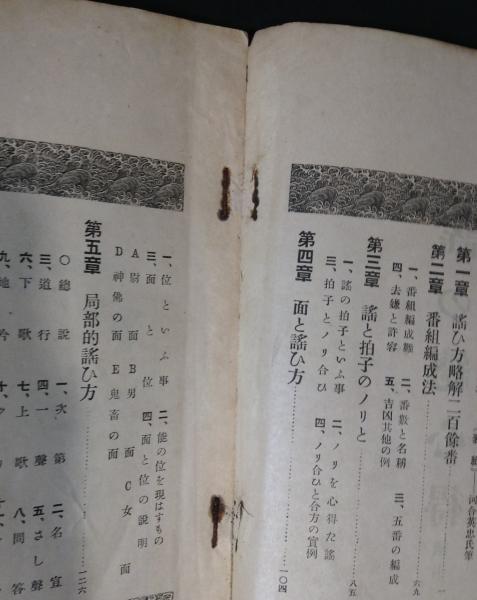 河合英忠氏筆
第一章 謠ひ方略解二百餘番
第二章 番組編成法 六九
一、番組編成順 二、番數と名稱 三、五番の編成
四、去嫌と許容 五、吉凶其他の例
第三章 謠と拍子のノリと 八五
一、謠の拍子といふ事 二、ノリを心得た謠
三、拍子とノリ合ひ 四、ノリ合ひと合方の實例
第四章 面と謠ひ方 一〇四
一、位といふ事 二、能の位を現はすもの
三、面と位 四、面と位の說明
A尉面 B男面 C女面
D神佛の面 E鬼畜の面
第五章 局部的謠ひ方 一二六
〇總說 一、次第 二、名宣
三、道行 四、一聲 五、さし聲
六、下歌 七、上歌 八、問答
九、地